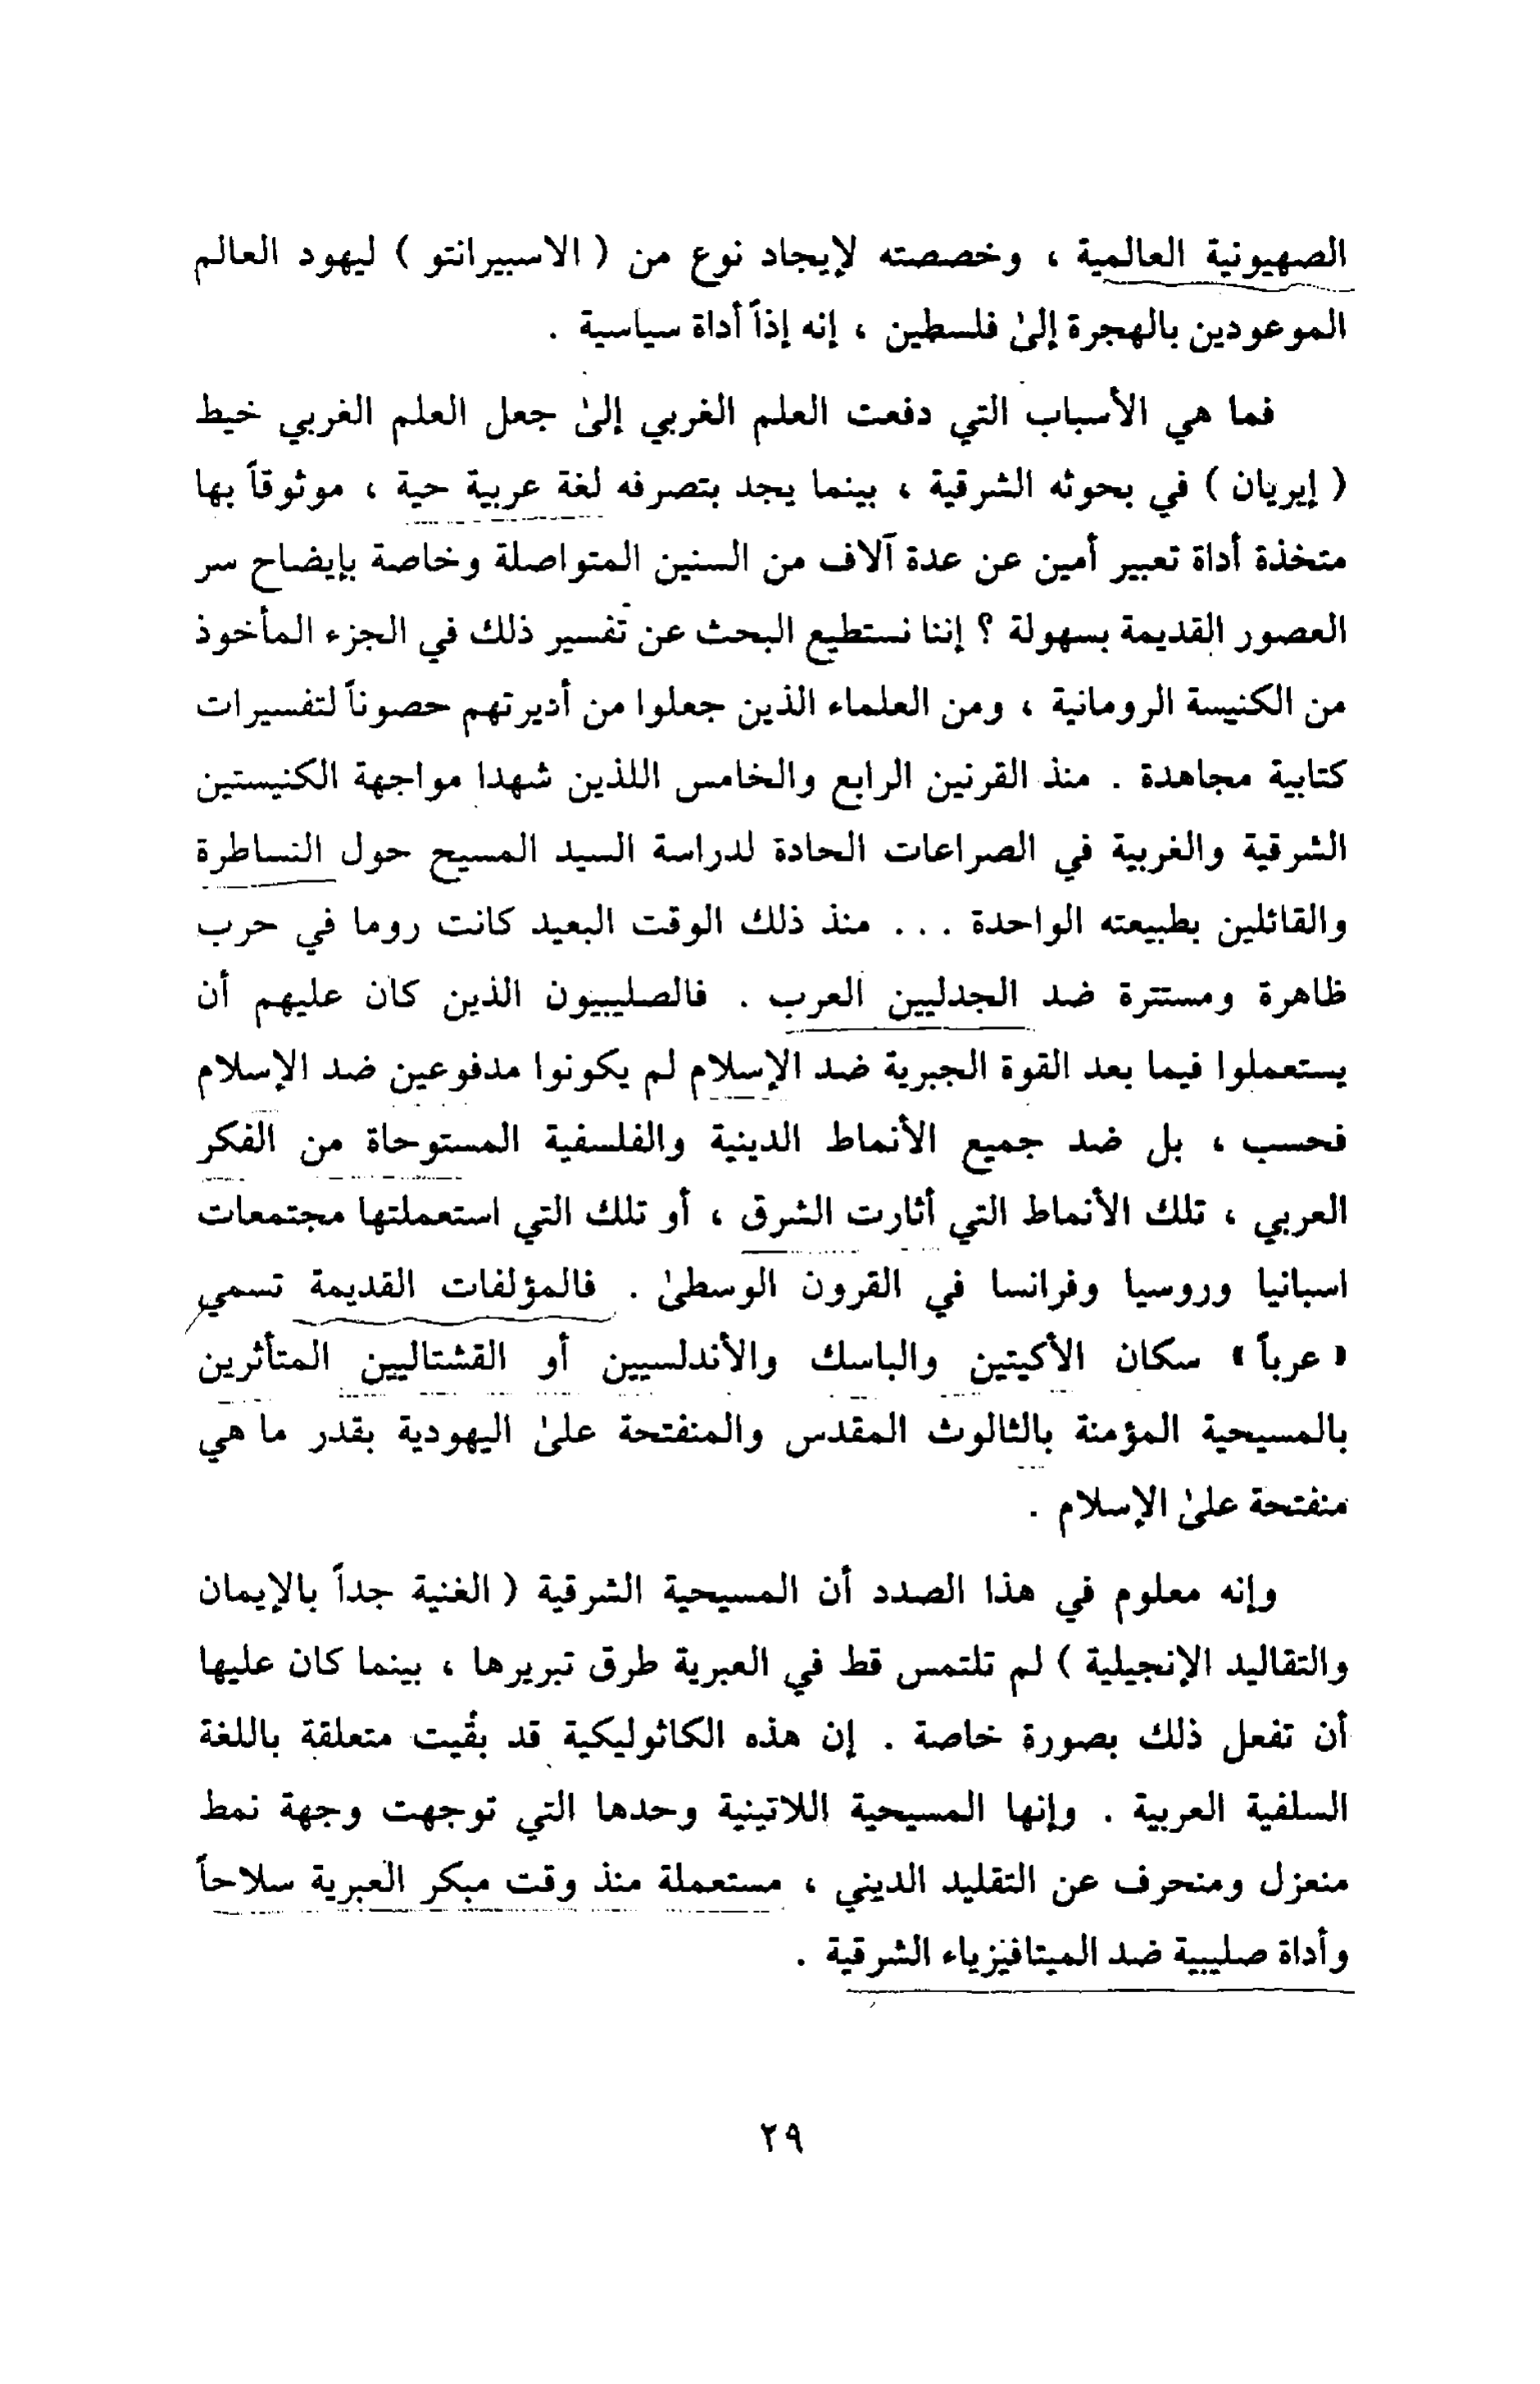 الصهيونية العالمية ، وخصصته لإيجاد نوع من ( الاسبيرانتو ) ليهود العالم
الموعودين بالهجرة إلىٰ فلسطين ، إنه إذاً أداة سياسية .
فما هي الأسباب التي دفعت العلم الغربي إلىٰ جعل العلم الغربي خيط
( إيريان ) في بحوثه الشرقية ، بينما يجد بتصرفه لغة عربية حية ، موثوقاً بها
متخذة أداة تعبير أمين عن عدة آلاف من السنين المتواصلة وخاصة بإيضاح سر
العصور القديمة بسهولة ؟ إننا نستطيع البحث عن تفسير ذلك في الجزء المأخوذ
من الكنيسة الرومانية ، ومن العلماء الذين جعلوا من أديرتهم حصوناً لتفسيرات
كتابية مجاهدة . منذ القرنين الرابع والخامس اللذين شهدا مواجهة الكنيستين
الشرقية والغربية في الصراعات الحادة لدراسة السيد المسيح حول النساطرة
والقائلين بطبيعته الواحدة ... منذ ذلك الوقت البعيد كانت روما في حرب
ظاهرة ومستترة ضد الجدليين العرب . فالصليبيون الذين كان عليهم أن
يستعملوا فيما بعد القوة الجبرية ضد الإسلام لم يكونوا مدفوعين ضد الإسلام
فحسب ، بل ضد جميع الأنماط الدينية والفلسفية المستوحاة من الفكر
العربي ، تلك الأنماط التي أثارت الشرق ، أو تلك التي استعملتها مجتمعات
اسبانيا وروسيا وفرانسا في القرون الوسطىٰ . فالمؤلفات القديمة تسمي
« عرباً » سكان الأكيتين والباسك والأندلسيين أو القشتاليين المتأثرين
بالمسيحية المؤمنة بالثالوث المقدس والمنفتحة علىٰ اليهودية بقدر ما هي
منفتحة علىٰ الإسلام .
وإنه معلوم في هذا الصدد أن المسيحية الشرقية ( الغنية جداً بالإيمان
والتقاليد الإنجيلية ) لم تلتمس قط في العبرية طرق تبريرها ، بينما كان عليها
أن تفعل ذلك بصورة خاصة . إن هذه الكاثوليكية قد بقُيت متعلقة باللغة
السلفية العربية . وإنها المسيحية اللاتينية وحدها التي توجهت وجهة نمط
منعزل ومنحرف عن التقليد الديني ، مستعملة منذ وقت مبكر العبرية سلاحاً
وأداة صليبية ضد الميتافيزياء الشرقية .
٢٩